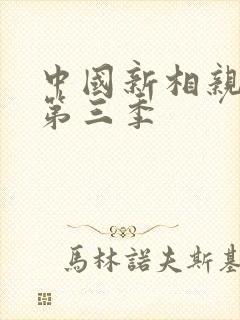 中國新相親
第三季
馬林諾夫斯基